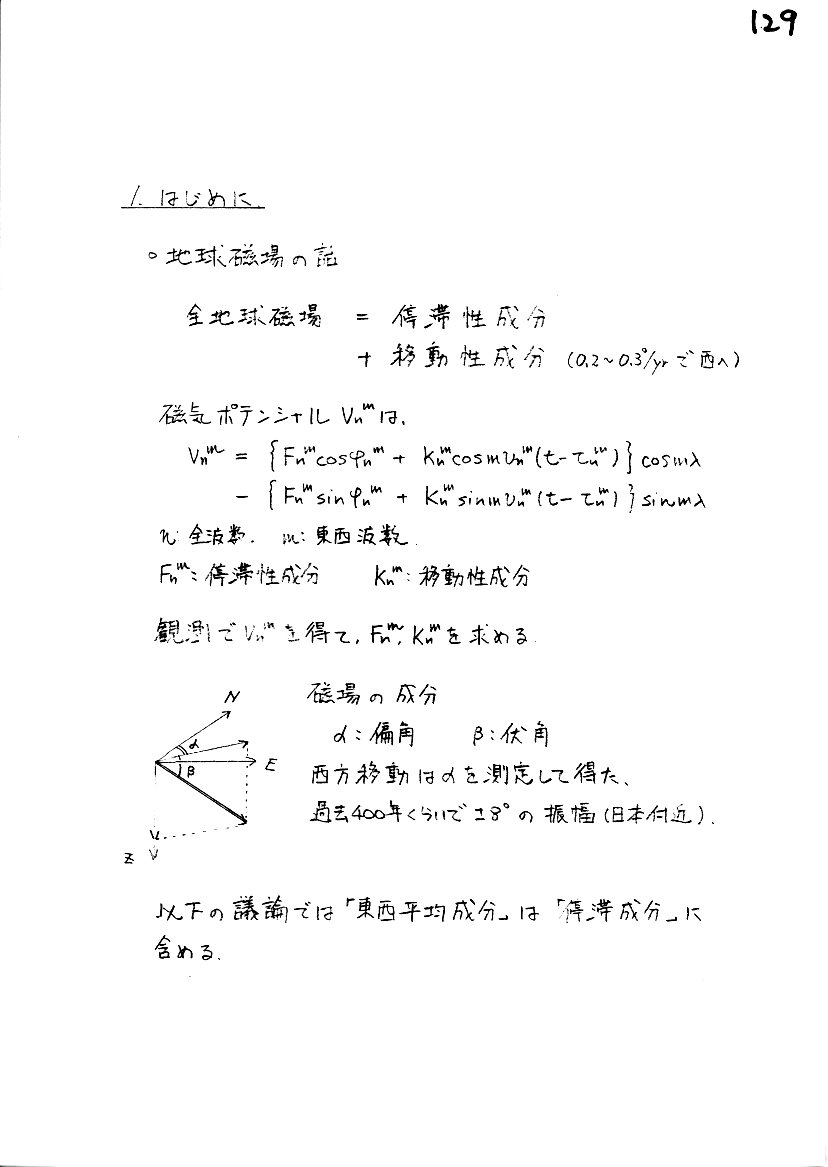 129
1. はじめに
○地球磁場の話
全地球磁場 = 停滞性成分
+ 移動性成分 (0.2~0.3°/yrで西へ)
磁気ポテンシャル Vₙᵐは、
Vₙᵐ = {Fₙᵐcosφₙᵐ + Kₙᵐcosmυₙᵐ(t-τₙᵐ)}cosmλ
- {Fₙᵐsinφₙᵐ + Kₙᵐsinmυₙᵐ(t-τₙᵐ)}sinmλ
n: 全波数. m: 東西波数.
Fₙᵐ: 停滞性成分 Kₙᵐ: 移動性成分
観測でVₙᵐを得て, Fₙᵐ, Kₙᵐを求める.
磁場の成分
α: 偏角 β: 伏角
西方移動はαを測定して得た、
過去400年くらいで±8°の振幅(日本付近).
N
α
E
β
Z
以下の議論では「東西平均成分」は「停滞成分」に
含める.